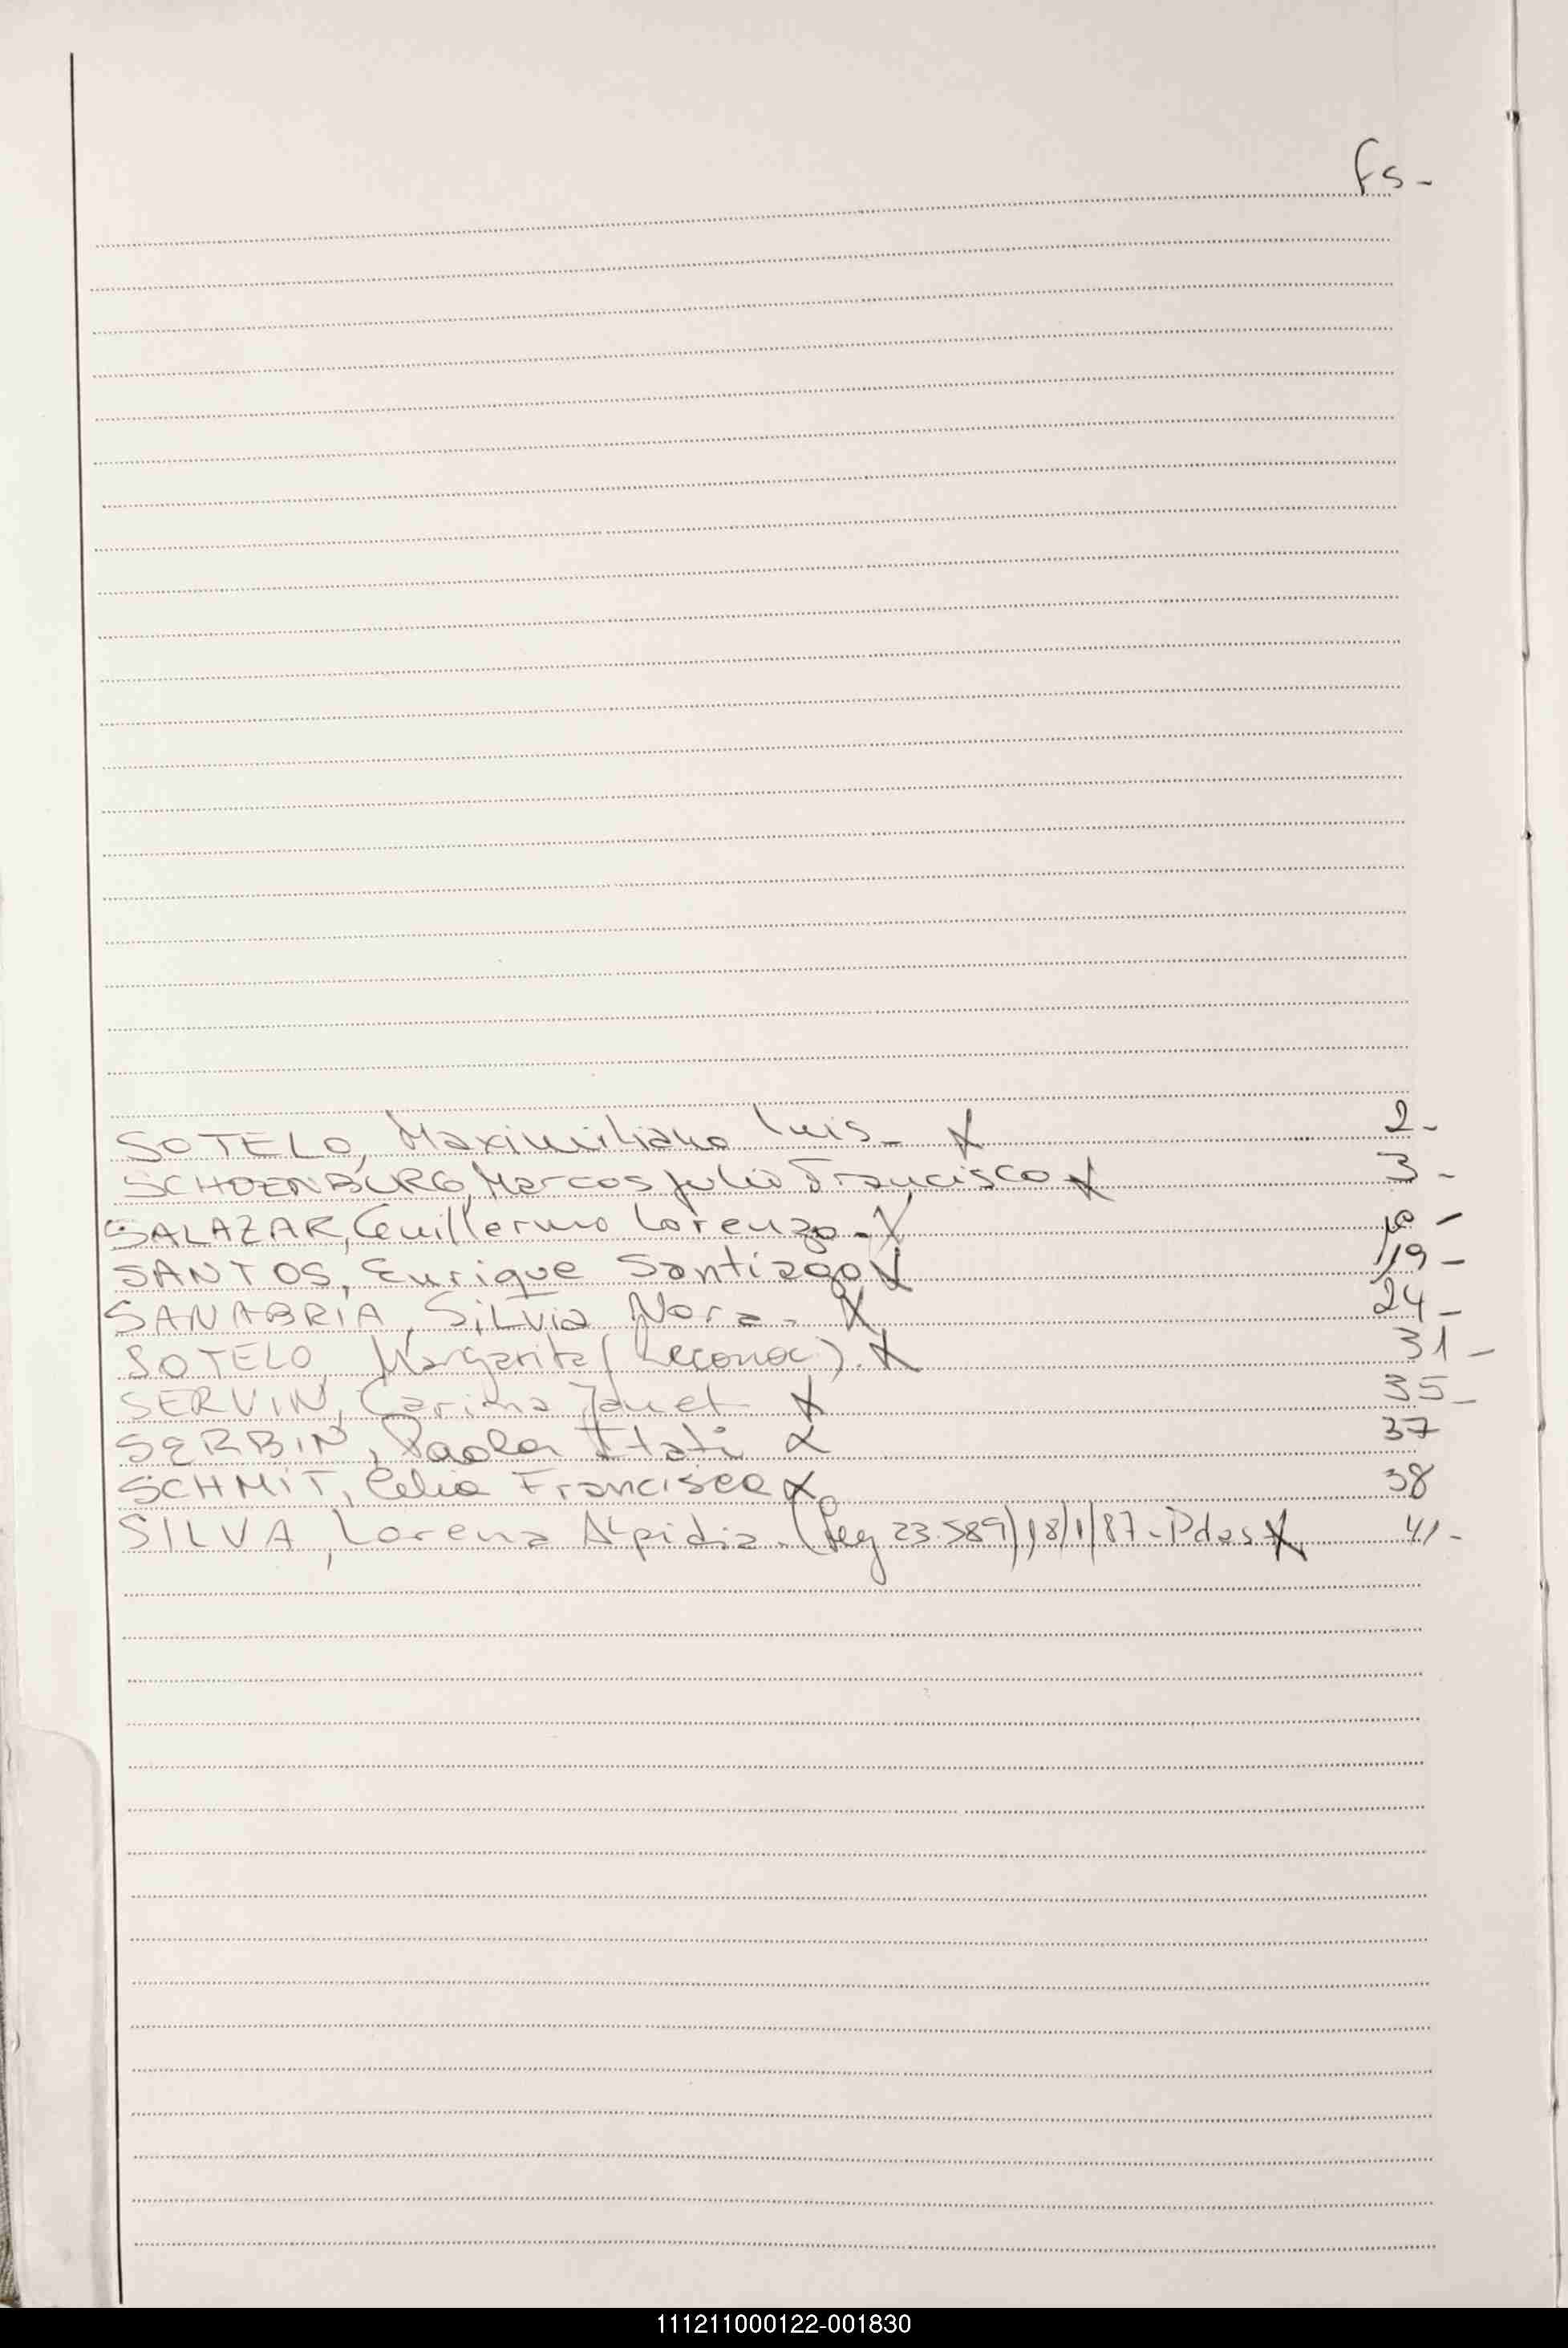 Fs-
SOTELO, Maximiliano Luis - X 2-
SCHOENBURG, Marcos Julio Francisco X 3-
SALAZAR, Guillermo Lorenzo - X 10-
SANTOS, Enrique Santiago X 19-
SANABRIA, Silvia Nora - X 24-
SOTELO, Margarita (Reconoc). X 31-
SERVIN, Carina Janet X 35-
SERBIN, Paola Itati X 37
SCHMIT, Celia Francisca X 38
SILVA, Lorena Alpidia. (Leg 23.589) 18/1/87 - Pdas X 41-
111211000122-001830